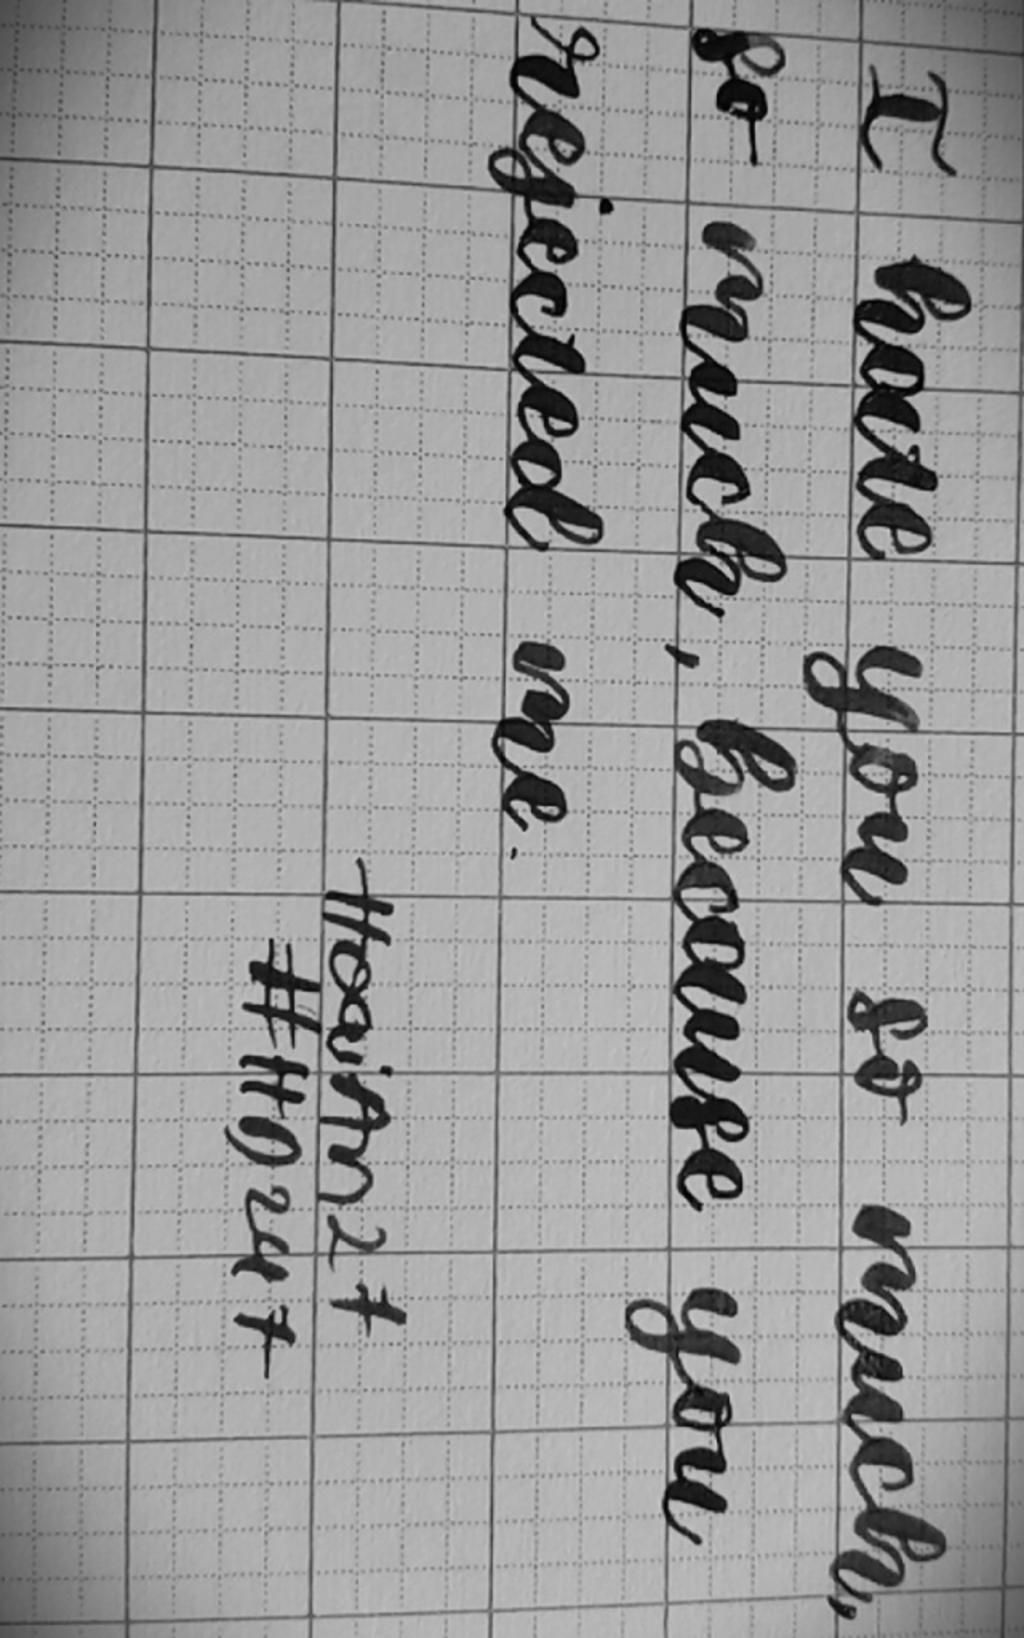 I hate you so much,
so much, because you
rejected me.
HoaiAn27
#HD247